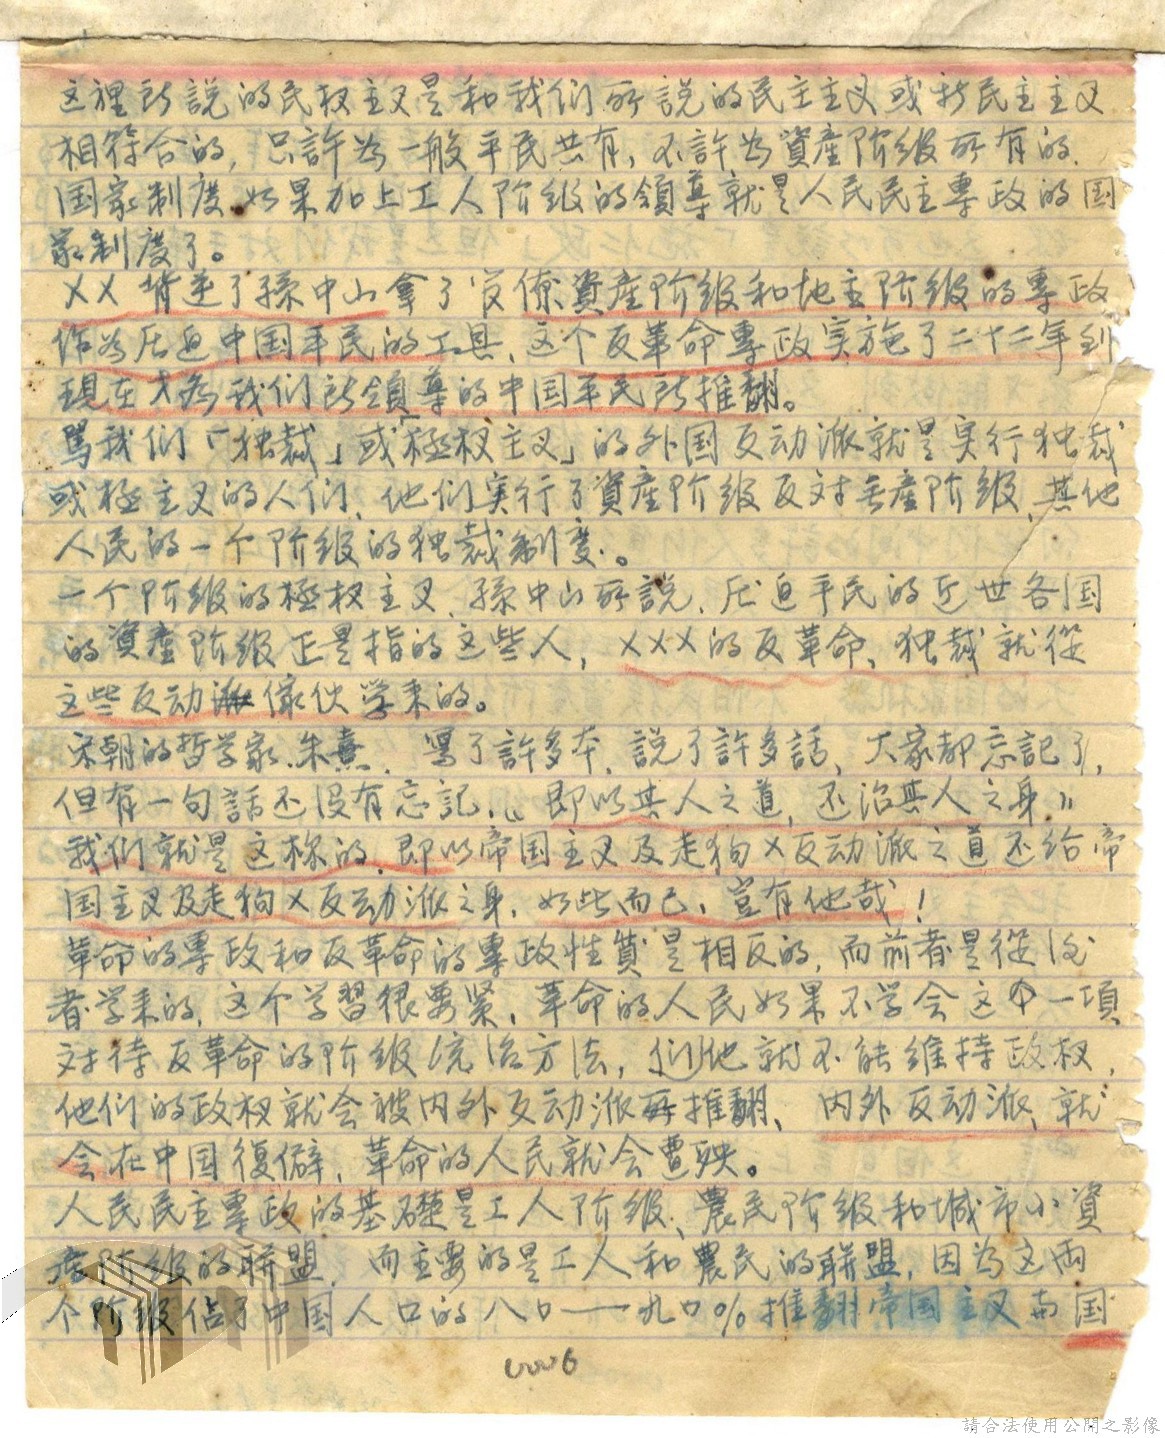 这裡所説的民权主义是和我们所説的民主主义或新民主主义
相符合的，只許為一般平民共有，不許為資產阶级所有的．
国家制度．如果加上工人阶级的領导就是人民民主專政的国
家制度了。
XX背逆了孫中山拿了官僚資產阶级和地主阶级的專政
作為压迫中国平民的工具、这个反革命專政实施了二十二年到
現在才為我们所領導的中国平民所推翻。
罵我们「独裁」或「極权主义」的外国反动派就是实行独裁
或極主义的人们、他们実行了資產阶级反对無產阶级、其他
人民的一个阶级的独裁制度。
一个阶级的極权主义、孫中山所説、压迫平民的近世各国
的資產阶级正是指的这些人，XXX的反革命、独裁就從
这些反动派傢伙学来的。
宋朝的哲学家．朱熹．写了許多本、説了許多話、大家都忘記了，
但有一句話还没有忘記《即以其人之道，还治其人之身》
我们就是这樣的，即以帝国主义及走狗X反动派之道还给帝
国主义及走狗X反动派之身，如此而已，豈有他哉！
革命的專政和反革命的專政性質是相反的，而前者是從後
者学来的，这个学習很要紧，革命的人民如果不学会这个一項
对待反革命的阶级统治方法，们他就不能維持政权，
他们的政权就会被内外反动派所推翻、内外反动派、就
会在中国復僻，革命的人民就会遭殃。
人民民主專政的基礎是工人阶级、農民阶级和城市小資
產阶级的联盟，而主要的是工人和農民的联盟，因為这両
个阶级佔了中国人口的八〇——九〇％推翻帝国主义和国
0006
請合法使用公開之影像